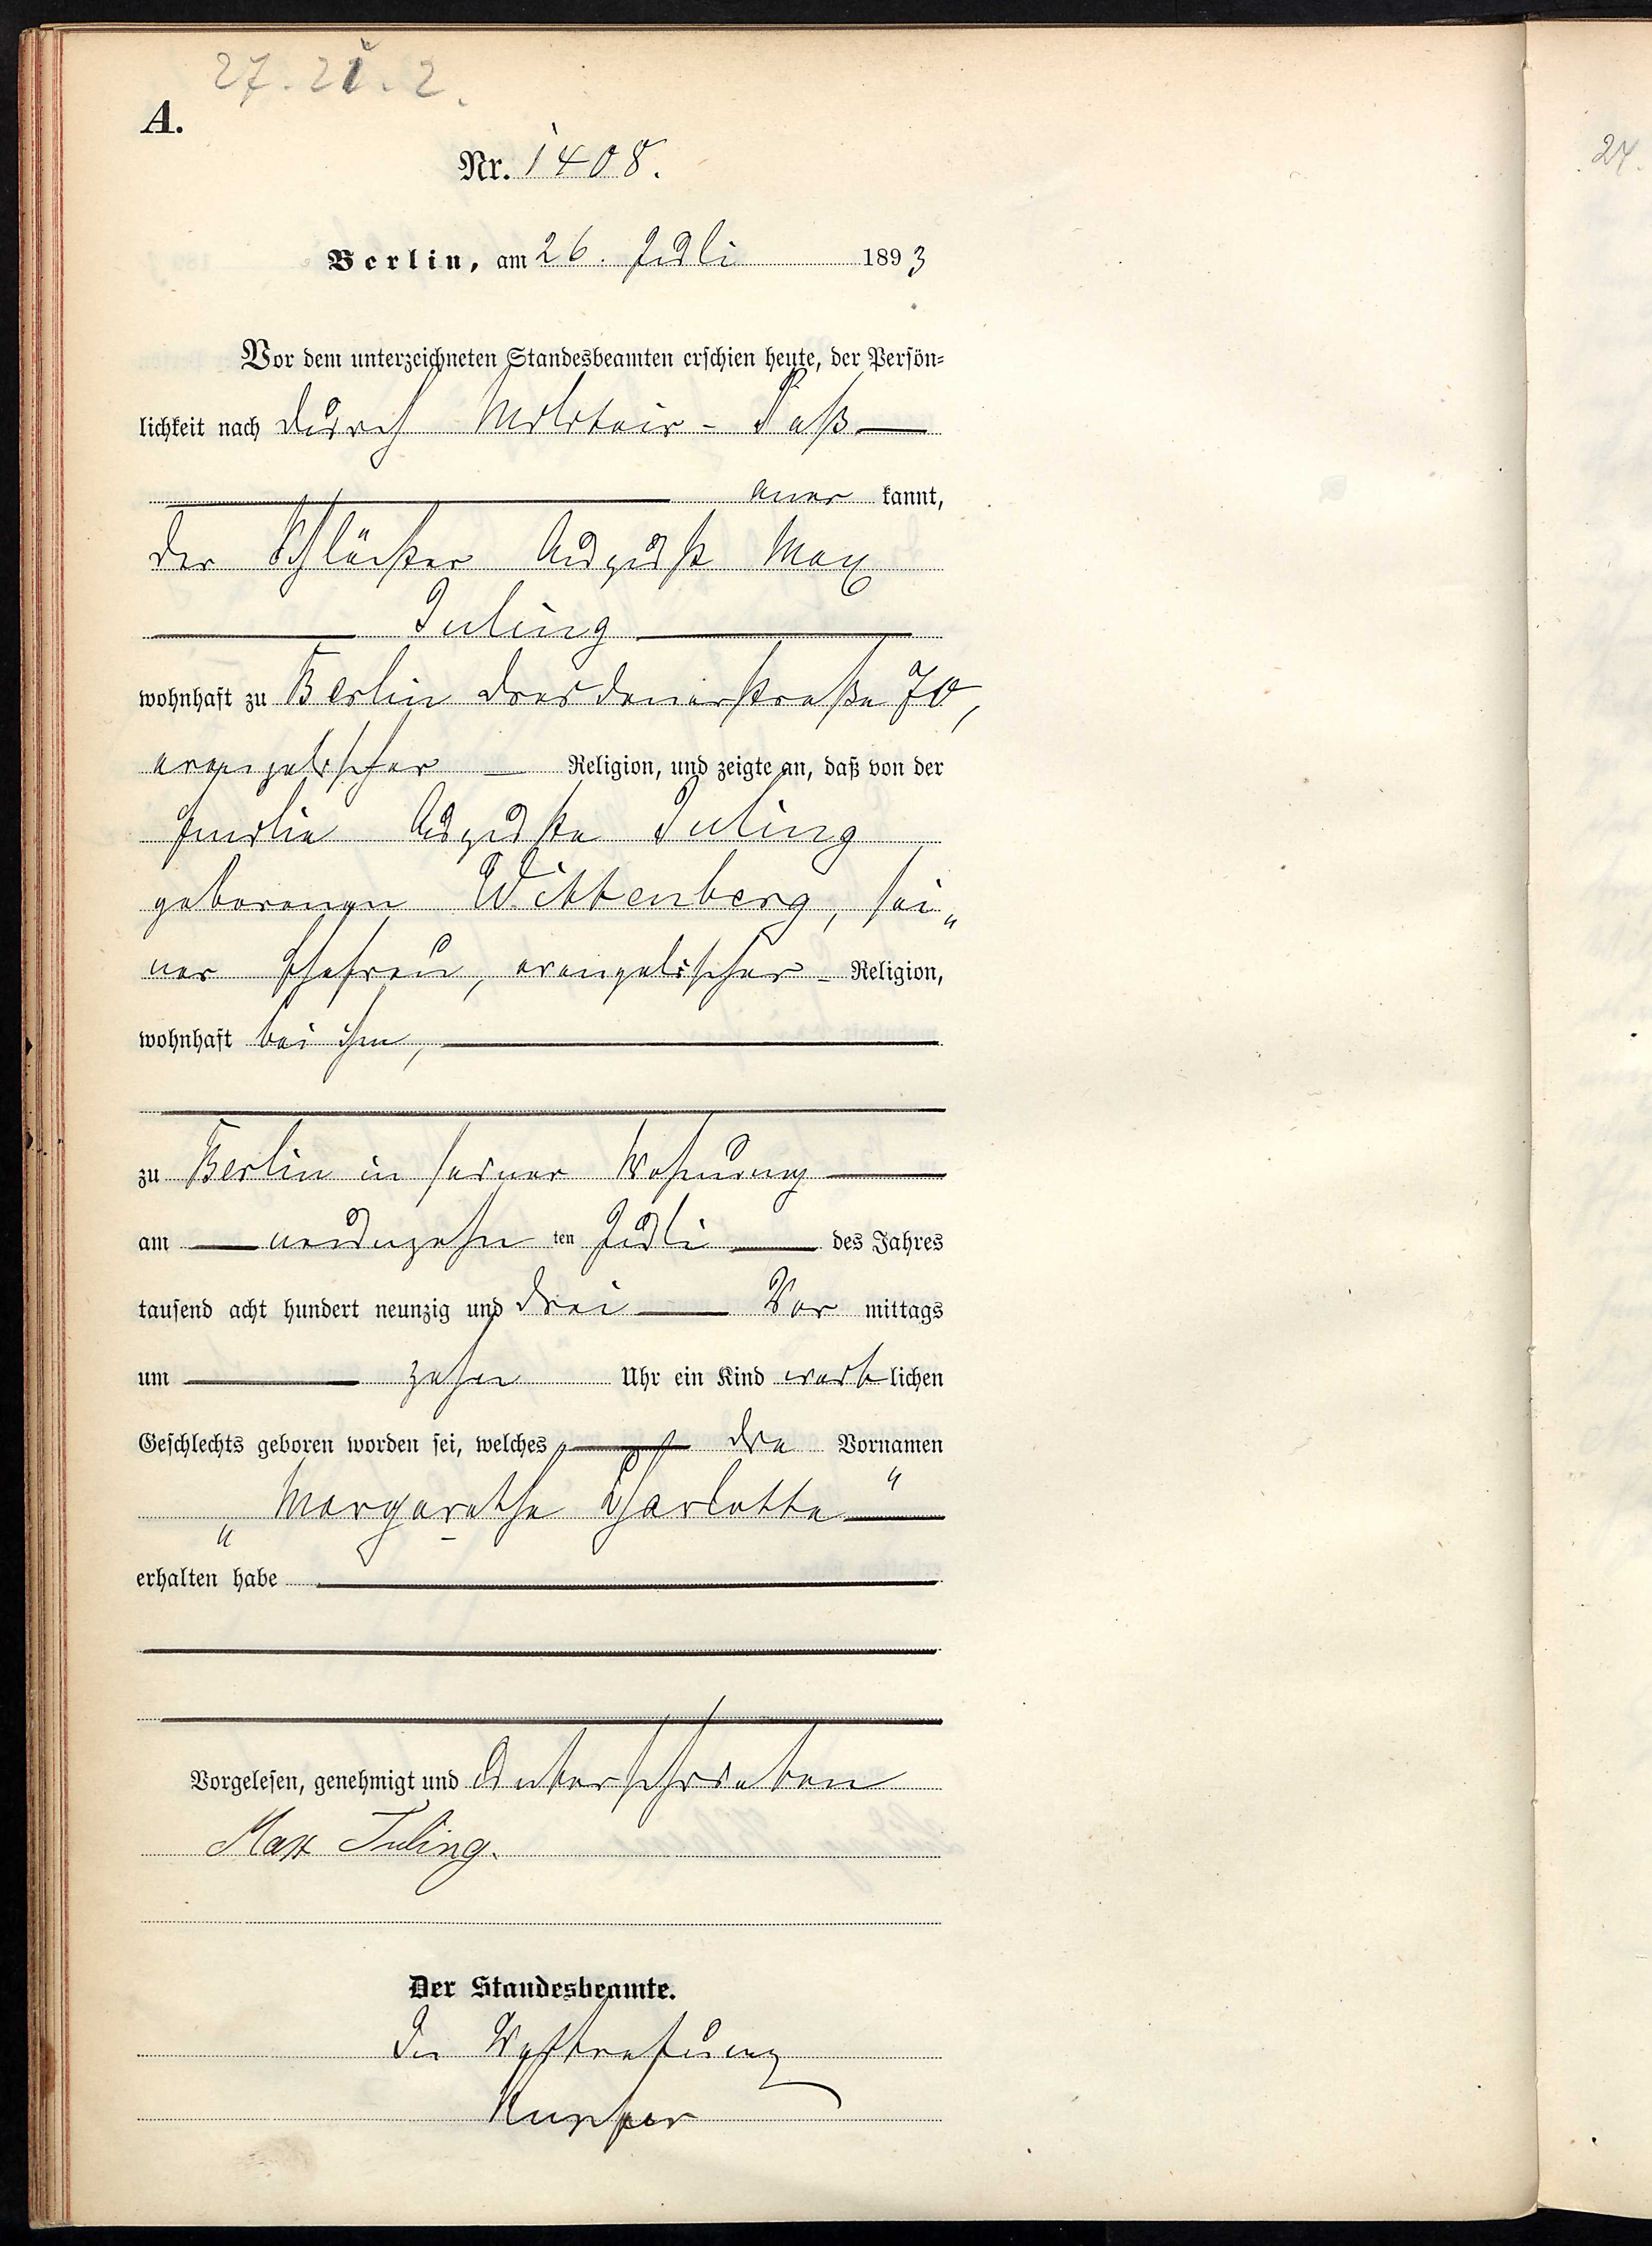 27.21.2.
A.
Nr. 1408.
Berlin, am 26. Juli 1893
Vor dem unterzeichneten Standesbeamten erschien heute, der Persön=
lichkeit nach durch Militair-Paß
aner kannt,
der August Max
Juling
wohnhaft zu Berlin Dresdenerstraße 70,
evangelischer Religion, und zeigte an, daß von der
Auguste Juling
geborenen Wittenberg, sei„
ner Ehefrau, evangelischer Religion,
wohnhaft bei ihm,
zu Berlin in seiner Wohnung
am neunzehn ten Juli des Jahres
tausend acht hundert neunzig und drei Vor mittags
um zehn Uhr ein Kind weib lichen
Geschlechts geboren worden sei, welches die Vornamen
„Margarethe Charlotte“
erhalten habe
Vorgelesen, genehmigt und unterschrieben
Max Juling.
Der Standesbeamte.
In Vertretung
24.